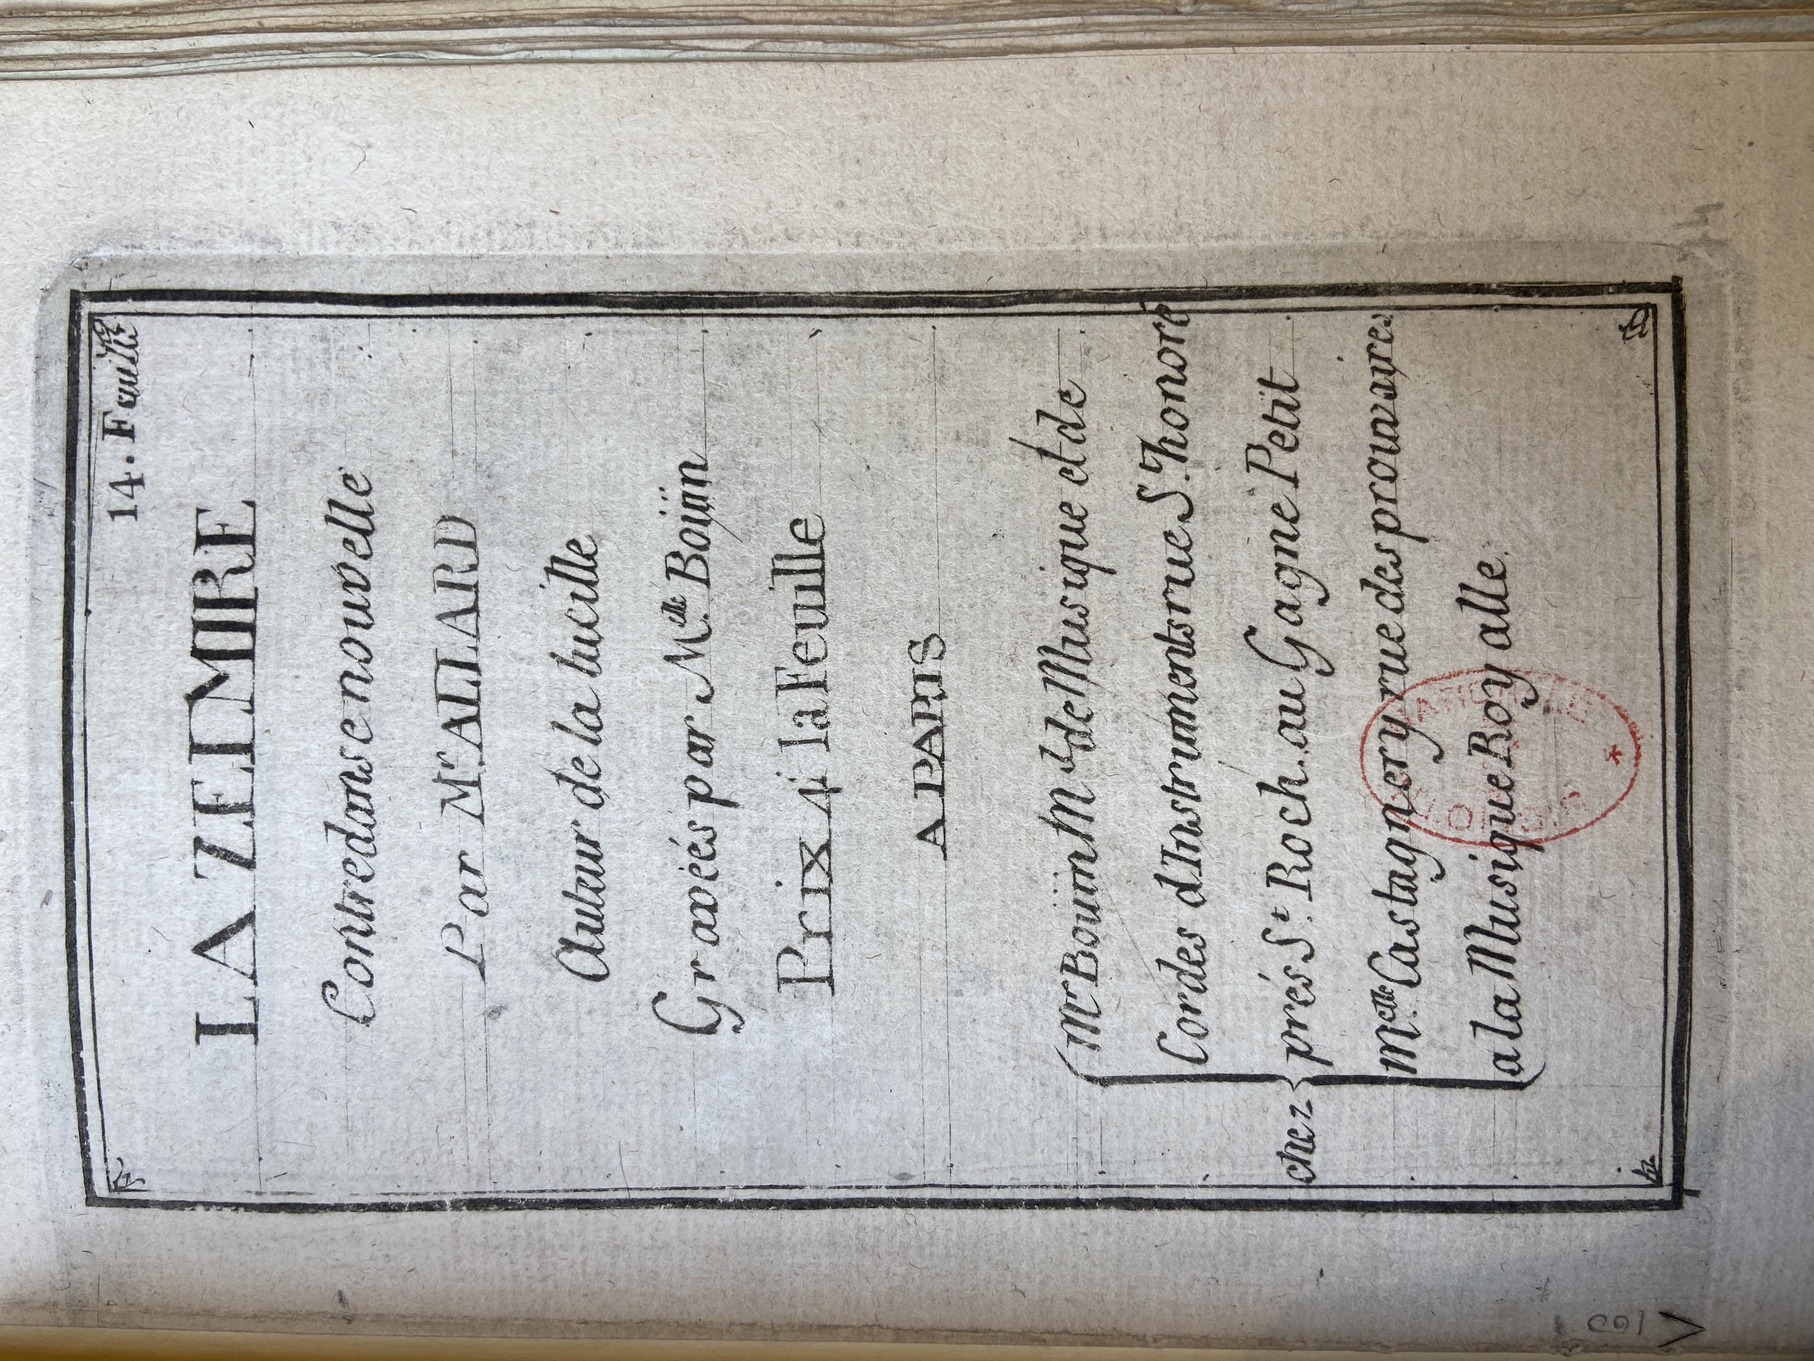 14. Feuille
LA ZEEMIRE
Contredanse nouvelle
Par Mr. ALLARD
Auteur de la lucille
Gravéés par Melle. Boüin
Prix 4s la Feuille
A PARIS
chez
Mr Boüin Md de Musique et de
Cordes d'Instruments rue St. honoré
prés St. Roch. au Gagne Petit
Melle. Castagnery rue des prouvaires
a la Musique Royalle.